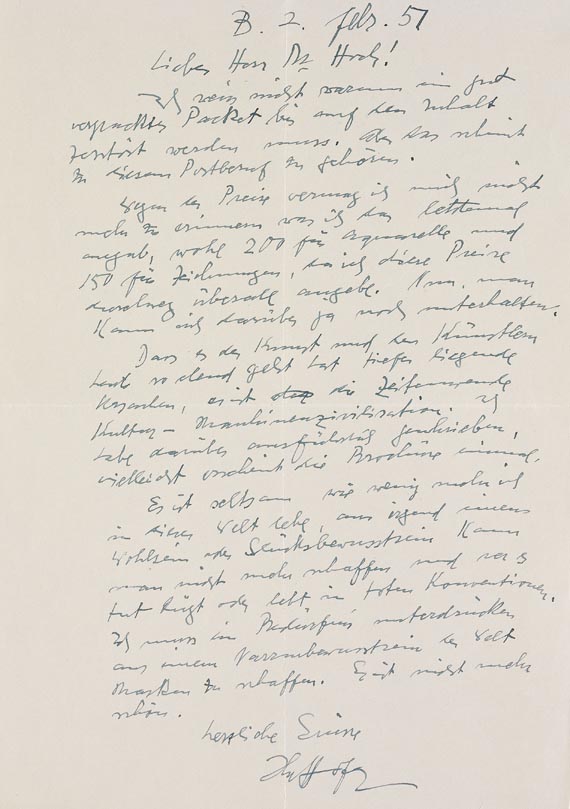 B. 2. febr. 51
Lieber Herr Dr Hoch!
Ich weiss nicht warum ein gut
verpacktes Packet bis auf den Inhalt
zerstört werden muss. Aber das scheint
zu diesem Postberuf zu gehören.
Wegen der Preise vermag ich mich nicht
mehr zu erinnern was ich das letztemal
angab, wohl 200 für Aquarelle und
150 für Zeichnungen, da ich diese Preise
durchweg überall angebe. Nun, man
kann sich darüber ja noch unterhalten.
Dass es der Kunst und den Künstlern
heute so elend geht hat tiefer liegende
Ursachen, es ist die Zeitenwende
Kultur - Maschinenzivilisation. Ich
habe darüber ausführlich geschrieben,
vielleicht erscheint die Broschüre einmal.
Es ist seltsam wie wenig mehr ich
in dieser Welt lebe, aus irgend einem
Wohlsein oder Glücksbewusstsein kann
man nicht mehr schaffen und wer es
tut lügt oder lebt in toten Konventionen.
Ich muss ein Bedürfnis unterdrücken
aus einem Narrenbewusstsein der Welt
Masken zu schaffen. Es ist nicht mehr
schön.
Herzliche Grüsse